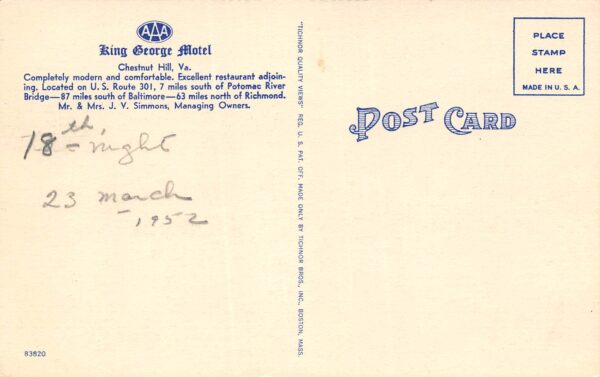 AAA
King George Motel
Chestnut Hill, Va.
Completely modern and comfortable. Excellent restaurant adjoin-
ing. Located on U. S. Route 301, 7 miles south of Potomac River
Bridge—87 miles south of Baltimore—63 miles north of Richmond.
Mr. & Mrs. J. V. Simmons, Managing Owners.
18th night
23 March
1952
83820
"TICHNOR QUALITY VIEWS" REG. U. S. PAT. OFF. MADE ONLY BY TICHNOR BROS., INC., BOSTON, MASS.
POST CARD
PLACE
STAMP
HERE
MADE IN U. S. A.